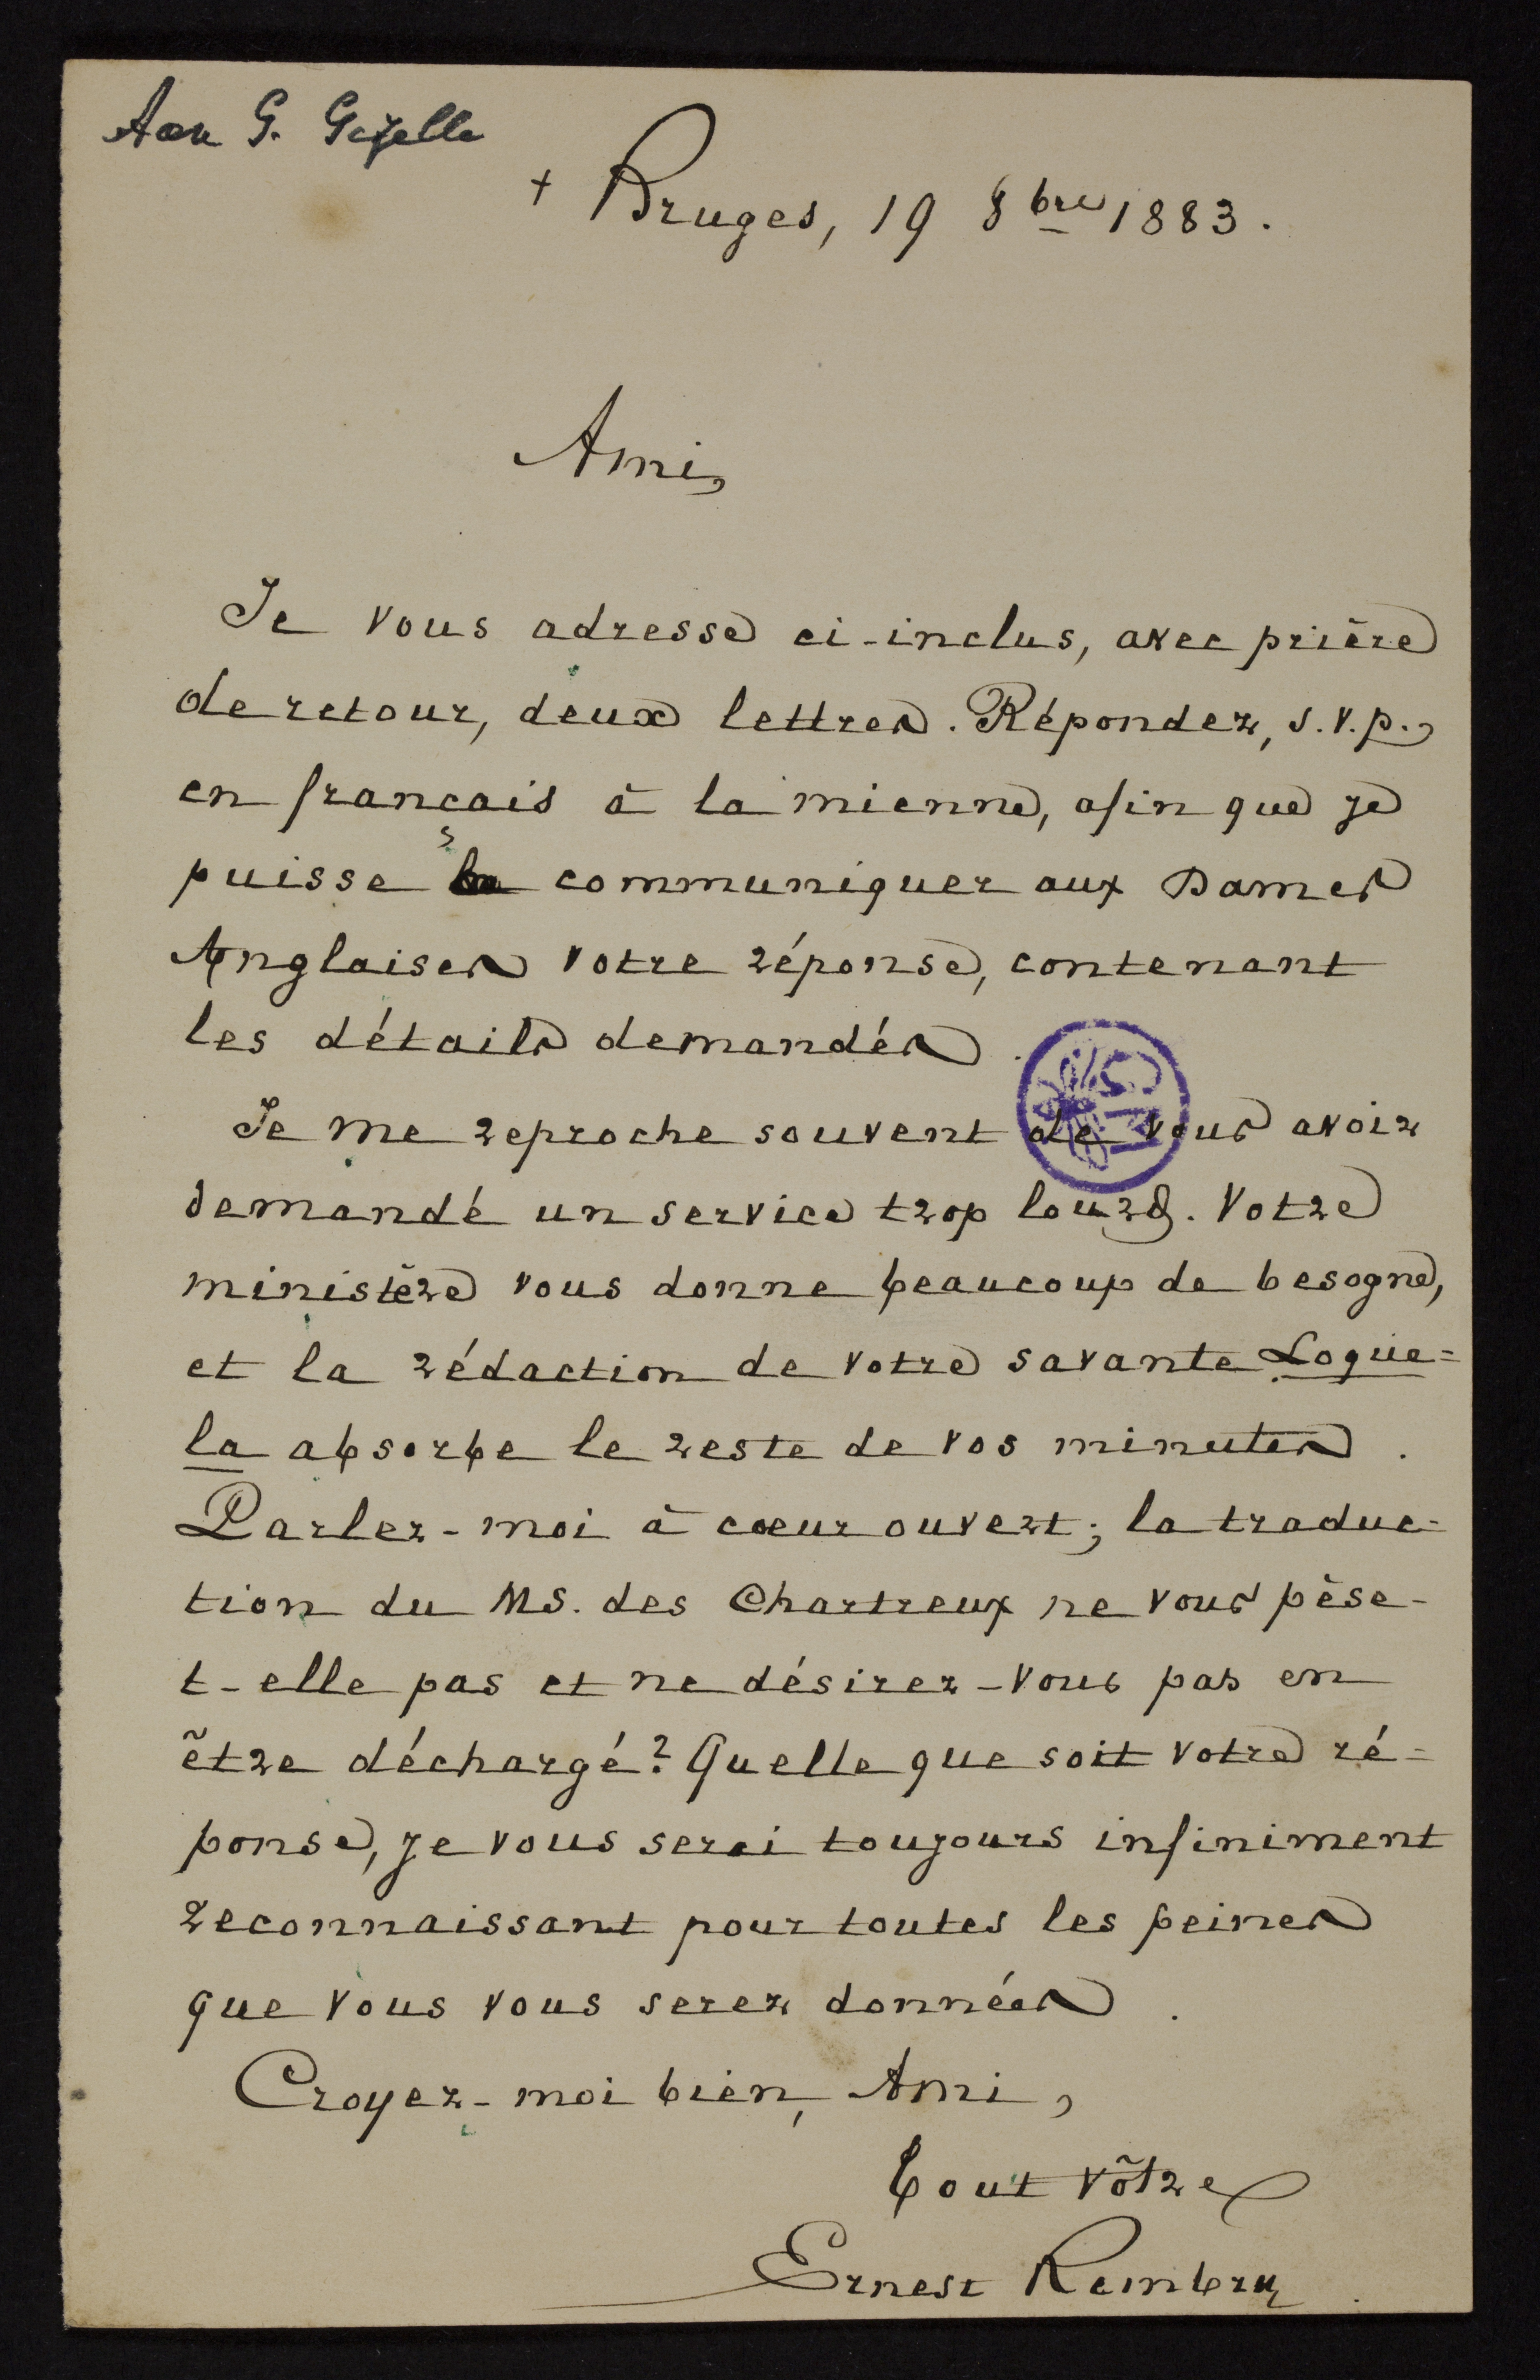 Aan G. Gezelle
+ Bruges, 19 8bre 1883.
Ami,
Je vous adresse ci-inclus, avec prière
de retour, deux lettres. Répondez, s.v.p.,
en français à la mienne, afin que je
puisse communiquer aux Dames
Anglaises votre réponse, contenant
les détails demandés.
Je me reproche souvent de vous avoir
demandé un service trop lourd. Votre
ministère vous donne beaucoup de besogne,
et la rédaction de votre savante Loque=
la absorbe le reste de vos minutes.
Parlez-moi à cœur ouvert; la traduc-
tion du MS. des Chartreux ne vous pèse-
t-elle pas et ne désirez-vous pas en
être déchargé? Quelle que soit votre ré-
ponse, je vous serai toujours infiniment
reconnaissant pour toutes les peines
que vous vous serez données.
Croyez-moi bien, Ami,
Tout vôtre
Ernest Rembry